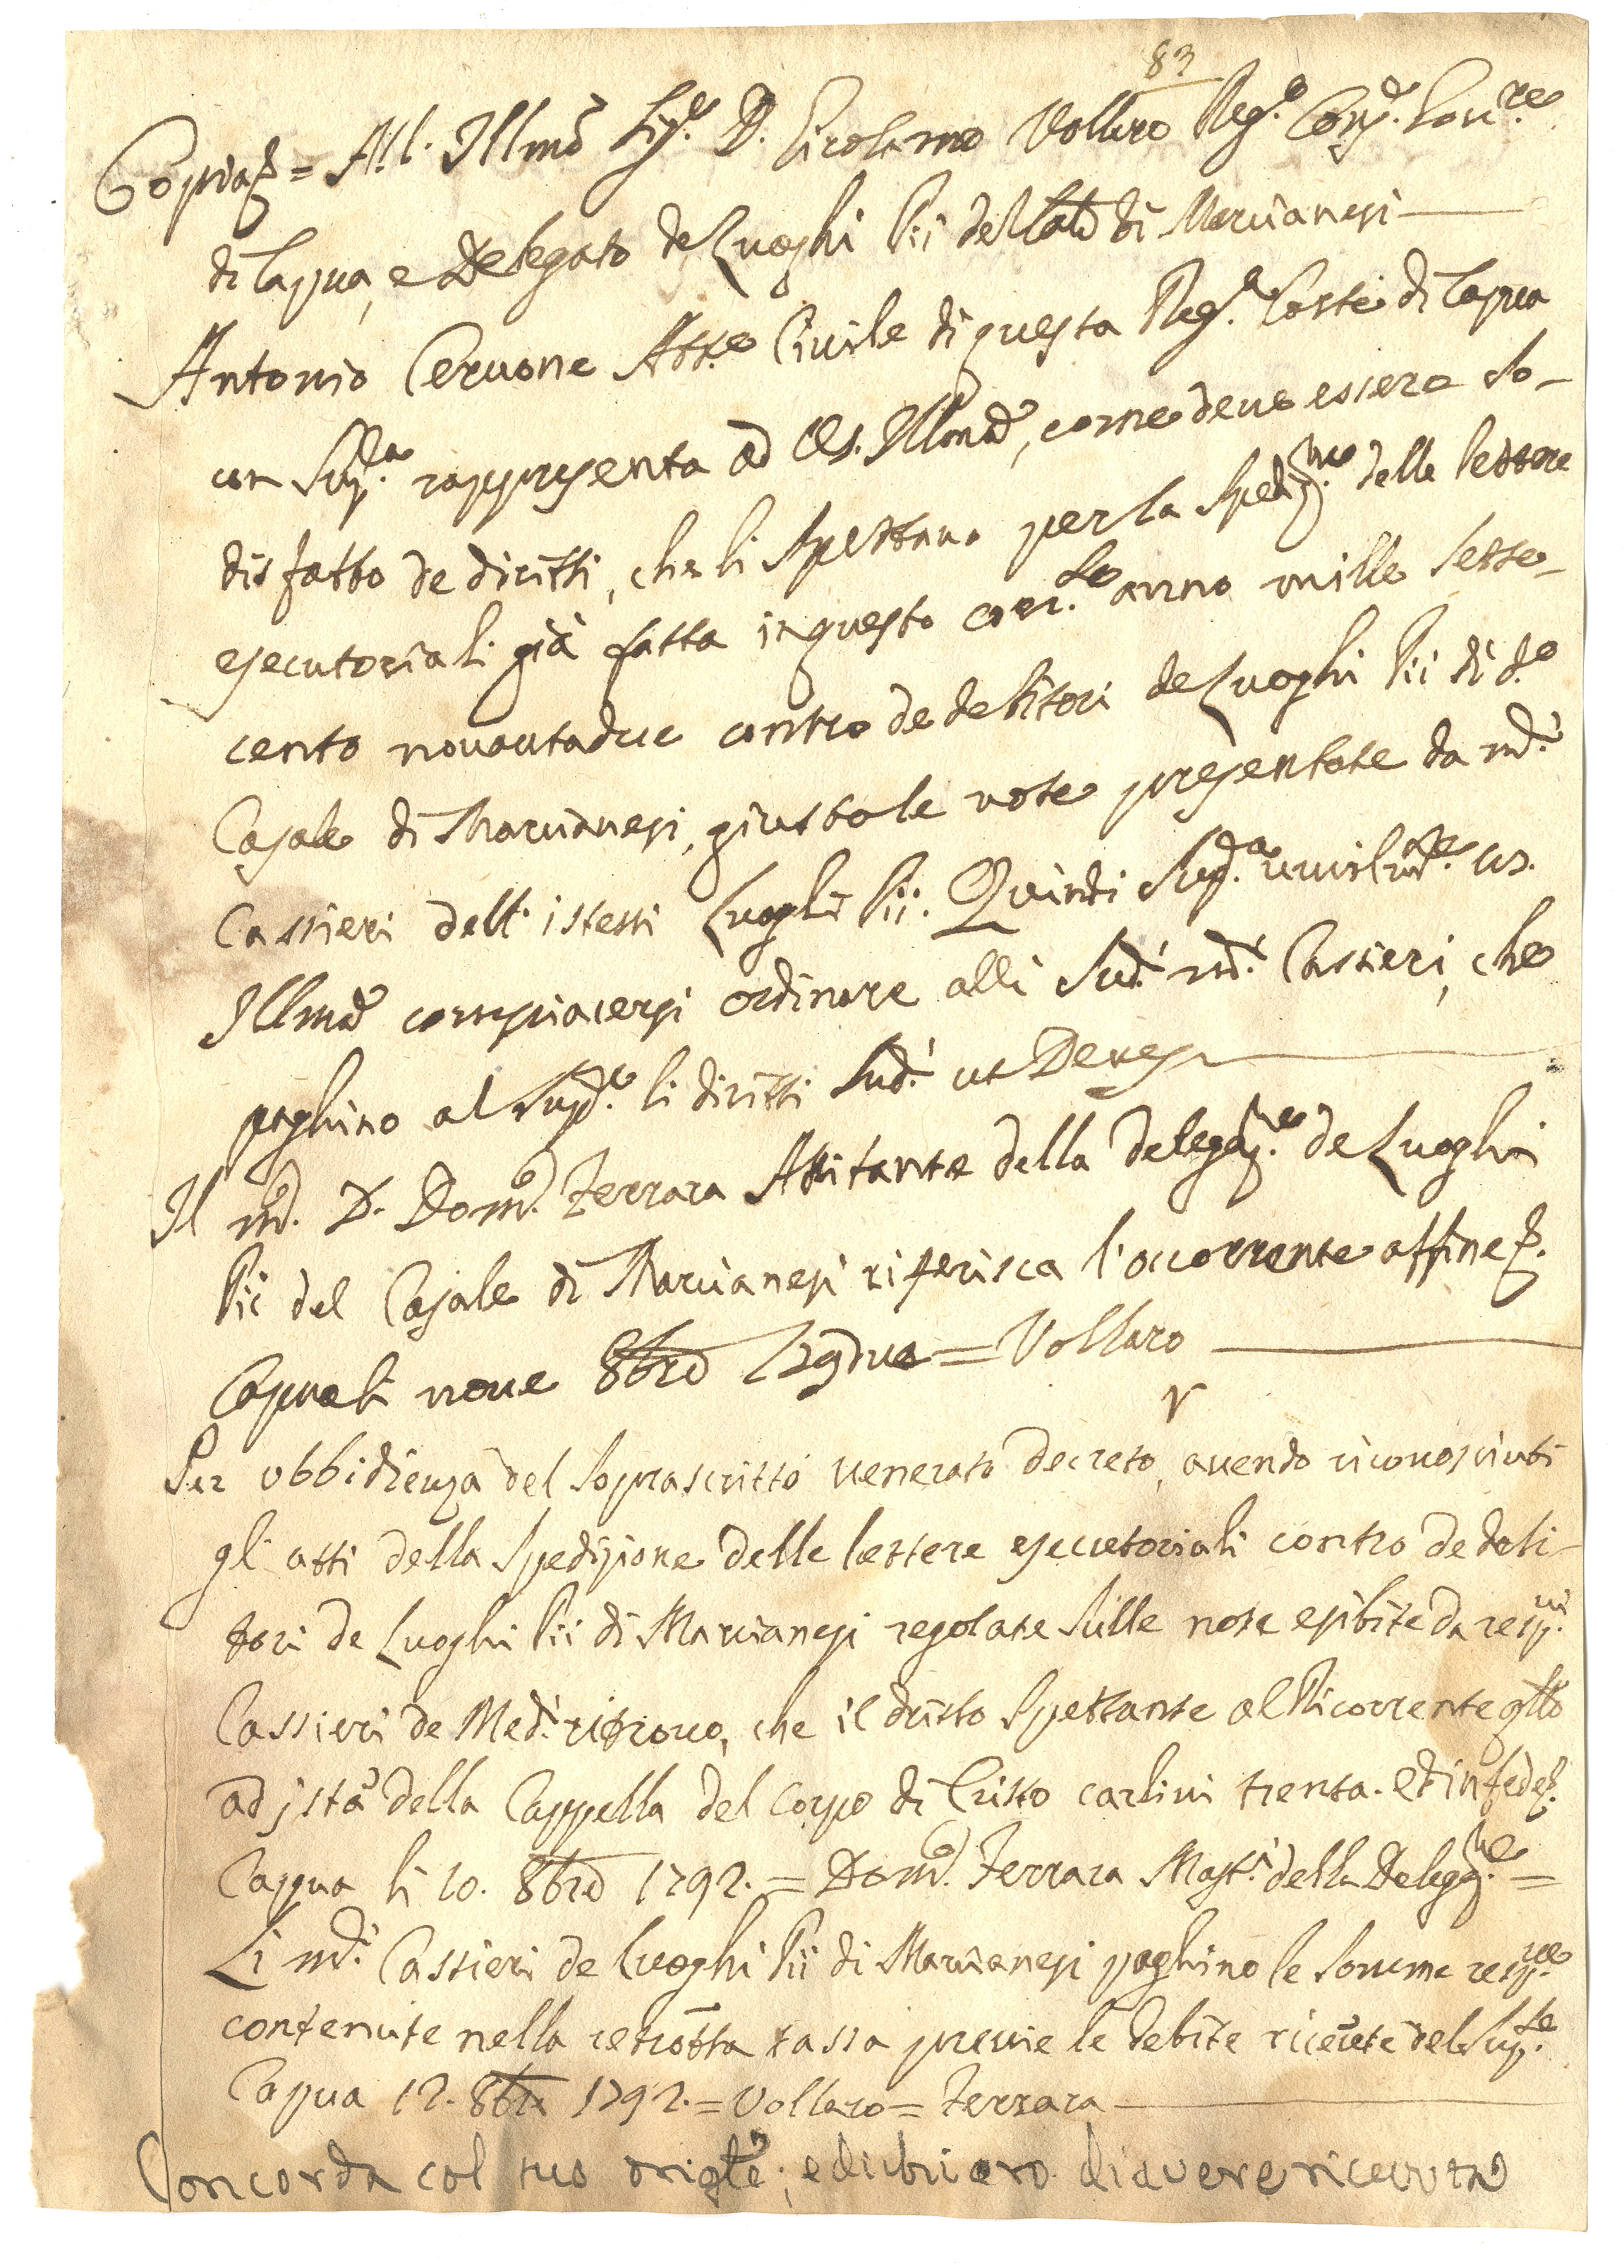 83
Copia = All' Illmo Sigr. D. Girolamo Vollaro Rega. Consr. Govre.
di Capua, e Delegato de Luoghi Pii del Cale di Marcianesi
Antonio Cervone Attro. Civile di questa Rega. Corte di Capua
con Suppa. rappresenta ad VS. Illma, come deve essere so-
disfatto de diritti, che li spettano per la spedizne. delle lettere
esecutoriali già fatta in questo corrte. anno mille sette-
cento novantadue contro de debitori de Luoghi Pii di do.
Casale di Marcianesi, giusta le note presentate da mci.
Cassieri dell' istessi Luoghi Pii. Quindi suppa. umilmte. VS.
Illma compiacersi ordinare alli sudi. mci. Cassieri, che
paghino al suppte. li diritti sudi. ut Deus
Il mco. D. Domco. Ferrara Attitante della Delegazne. de Luoghi
Pii del Casale di Marcianesi riferisca l'occorrente affine
Capua li nove 8bre 179due = Vollaro
Per ubbidienza del soprascritto venerato decreto, avendo riconosciuti
gli atti della spedizione delle lettere esecutoriali contro de debi-
tori de Luoghi Pii di Marcianesi regolate sulle note esibite da respvi.
Cassieri de Medi. ritrovo, che il dritto spettante al Ricorrente
ad istà della Cappella del Corpo di Cristo carlini trenta. Ed in fede
Capua li 10. 8bre 1792. = Domco. Ferrara Masti. della Delegne. =
Li mci. Cassieri de Luoghi Pii di Marcianesi paghino le somme respve.
contenute nella retrotta tassa previe le debite ricevute del suppte.
Capua 12. 8bre 1792. = Vollaro = Ferrara
Concorda col suo origle.; e dichiaro di avere ricevuto